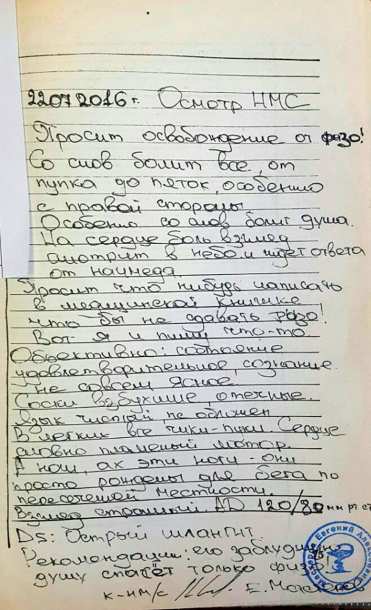 22.07.2016 г. Осмотр НМС
Просит освобождение от физо!
Со слов болит все, от
пупка до пяток, особенно
с правой стороны.
Особенно со слов болит душа.
На сердце боль взгляд
смотрит в небо и ждет ответа
от начмеда.
Просит что нибудь написать
в медицинской книжке
что бы не сдавать физо!
Вот я и пишу что-то.
Объективно: состояние
удовлетворительное, сознание
не совсем ясное.
Соски взбухшие, отечные.
Язык чистый, не обложен
В легких все чики-пуки. Сердце
словно пламеный мотор.
А ноги, ах эти ноги - они
просто рождены для бега по
пересеченой местности.
Взгляд страшный. АД 120/80 мм рт ст
Ds: Острый шлангит
Рекомендации: его заблудшую
душу спасёт только физо!
к-н м/с Е.
Евгений